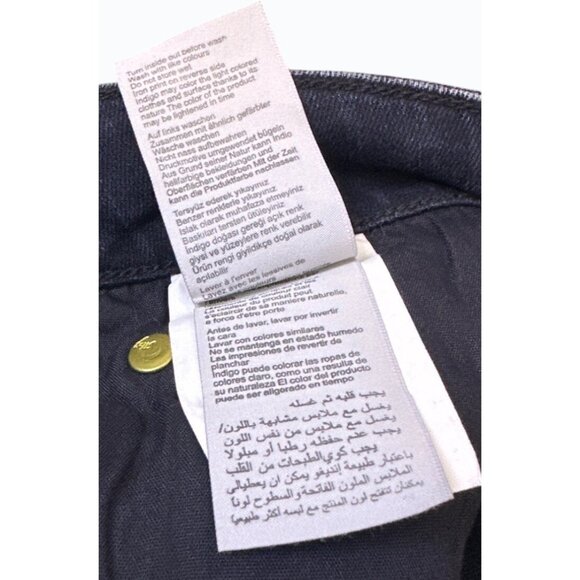 Turn inside out before wash
Wash with like colours
Do not store wet
Iron print on reverse side
Indigo may color the light colored
clothes and surface thanks to its
nature The color of the product
may be lightened in time
Auf links waschen
Zusammen mit ähnlich gefärbter
Wäsche waschen
Nicht nass aufbewahren
Druckmotive umgewendet bügeln
Aus Grund seiner Natur kann Indio
hellfarbige bekleidungen und
Oberflächen verfärben Mit der Zeit
kann die Produktfarbe nachlassen
Tersyüz ederek yıkayınız
Benzer renklerle yıkayınız
Islak olarak muhafaza etmeyiniz
Baskıları tersten ütüleyiniz
İndigo doğası gereği açık renk
giysi ve yüzeylere renk verebilir
Ürün rengi giyildikçe doğal olarak
açılabilir
Laver à l'envers
Lavez avec les lessives de
La couleur du produit peut
s'eclaircir de sa maniere naturelle,
a force d'etre porte
Antes de lavar, lavar por invertir
la cara
Lavar con colores similares
No se mantenga en estado humedo
Les impresiones de revertir de
planchar
Indigo puede colorar las ropas de
colores claro, como una resulta de
su naturaleza El color del producto
puede ser aligerado en tiempo
يجب قلبه ثم غسله
يغسل مع ملابس مشابهة باللون/
يغسل مع ملابس من نفس اللون
يجب عدم حفظه رطبا أو مبلولا
يجب كوي الطبخات من القلب
باعتبار طبيعة إنديغو يمكن ان يعطيالى
الملابس الملون الفاتحة والسطوح لونا
يمكن تفتح لون المنتج مع لبسه أكثر طبيعيا